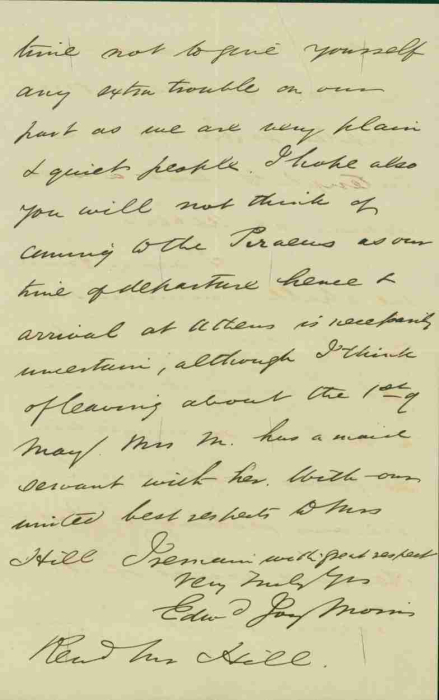 time not to give yourself
any extra trouble on our
part as we are very plain
& quiet people. I hope also
you will not think of
coming to the Piraeus as our
time of departure hence &
arrival at Athens is necessarily
uncertain, although I think
of leaving about the 1st of
May. Mrs M. has a maid
servant with her. With our
united best respects to Mrs
Hill I remain with great respect
Very truly Yrs
Edwd Joy Morris
Revd Mr Hill.